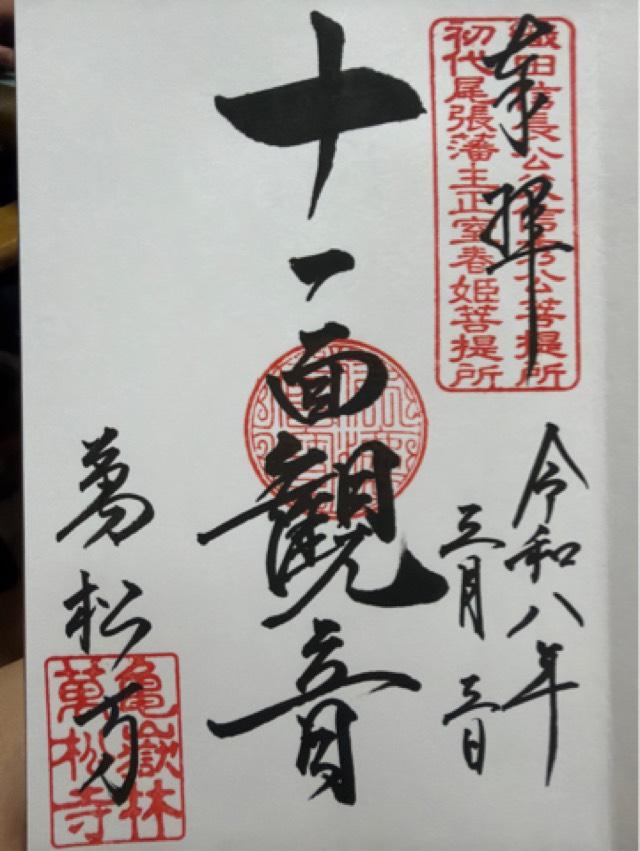 織田信長公父信秀公菩提所
初代尾張藩主正室春姫菩提所
奉拝
令和八年
三月三日
十一面觀音
萬松寺
亀嶽林
萬松寺